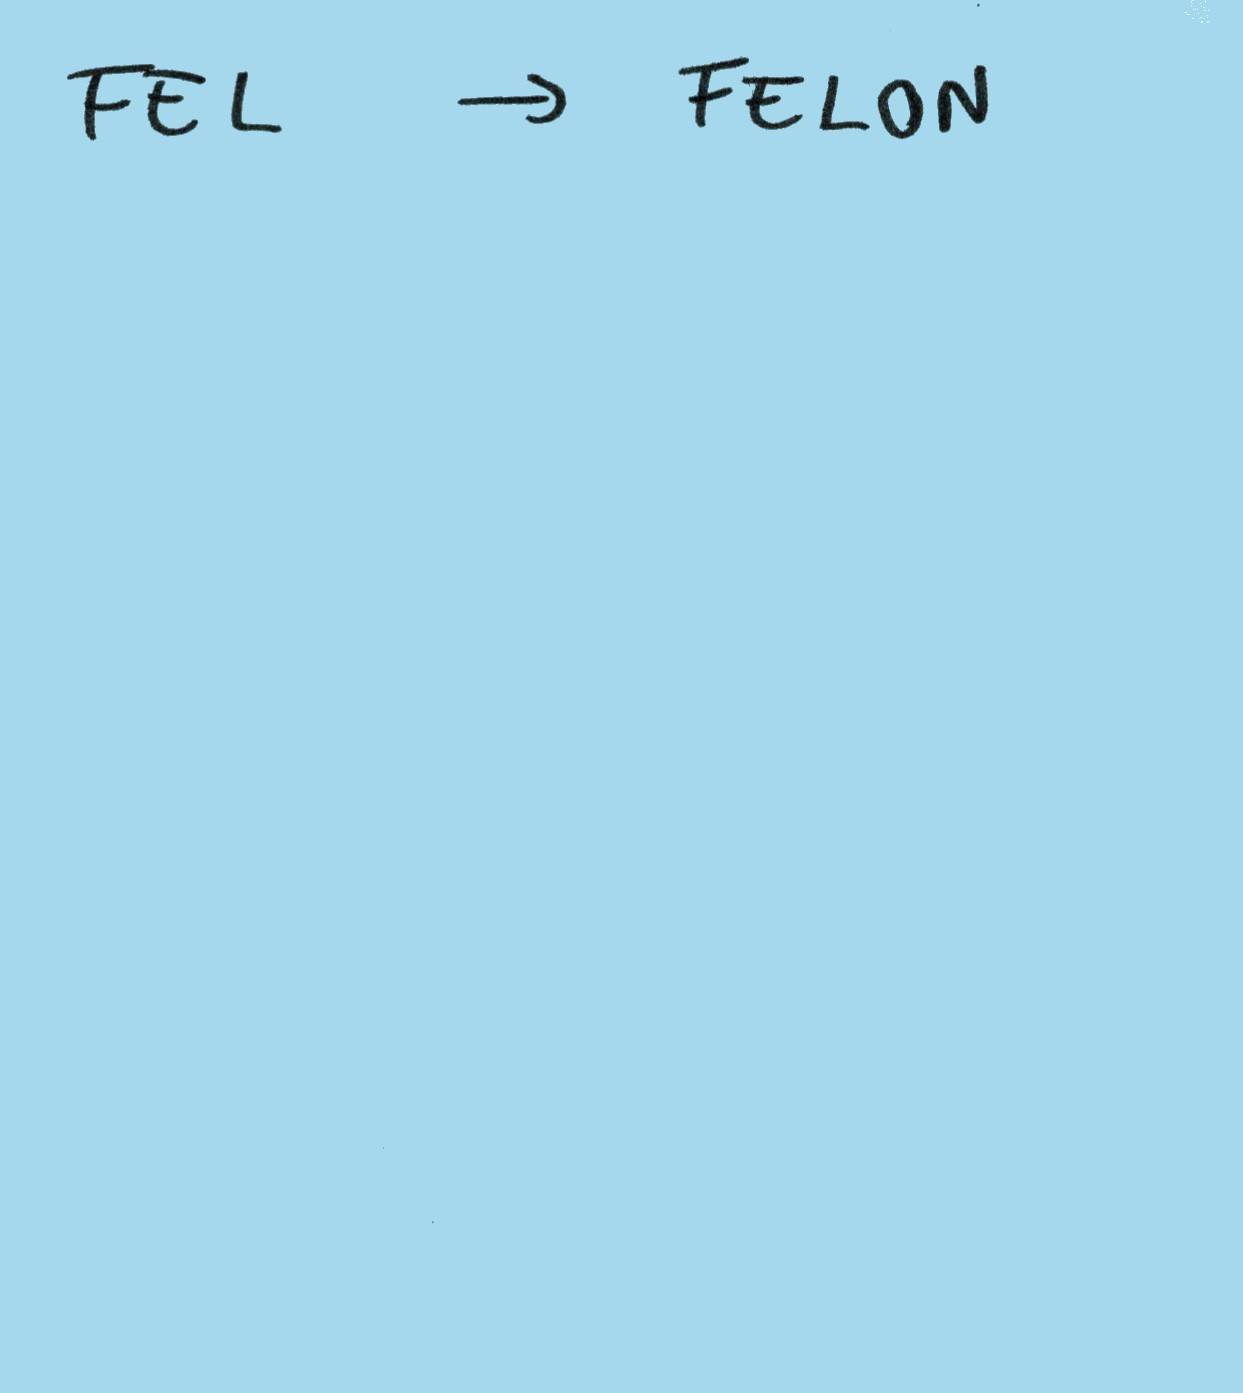 FEL → FELON